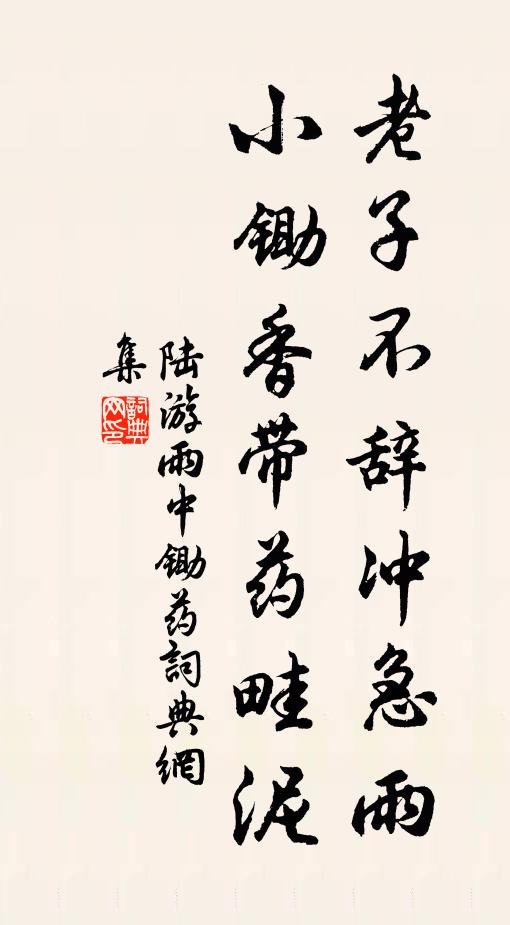 老子不辞冲急雨
小锄香带药畦泥
陆游雨中锄药詞典網
集
詞典
网印